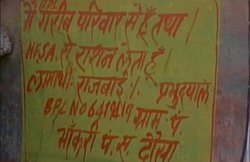 मैं गरीब परिवार से हूँ तथा
N.F.S.A. से राशन लेता हूँ।
राजबाई। प्रभुदयाल
BPL NO 641919 ग्राम. पं.
भांकरी पं. स. दौसा